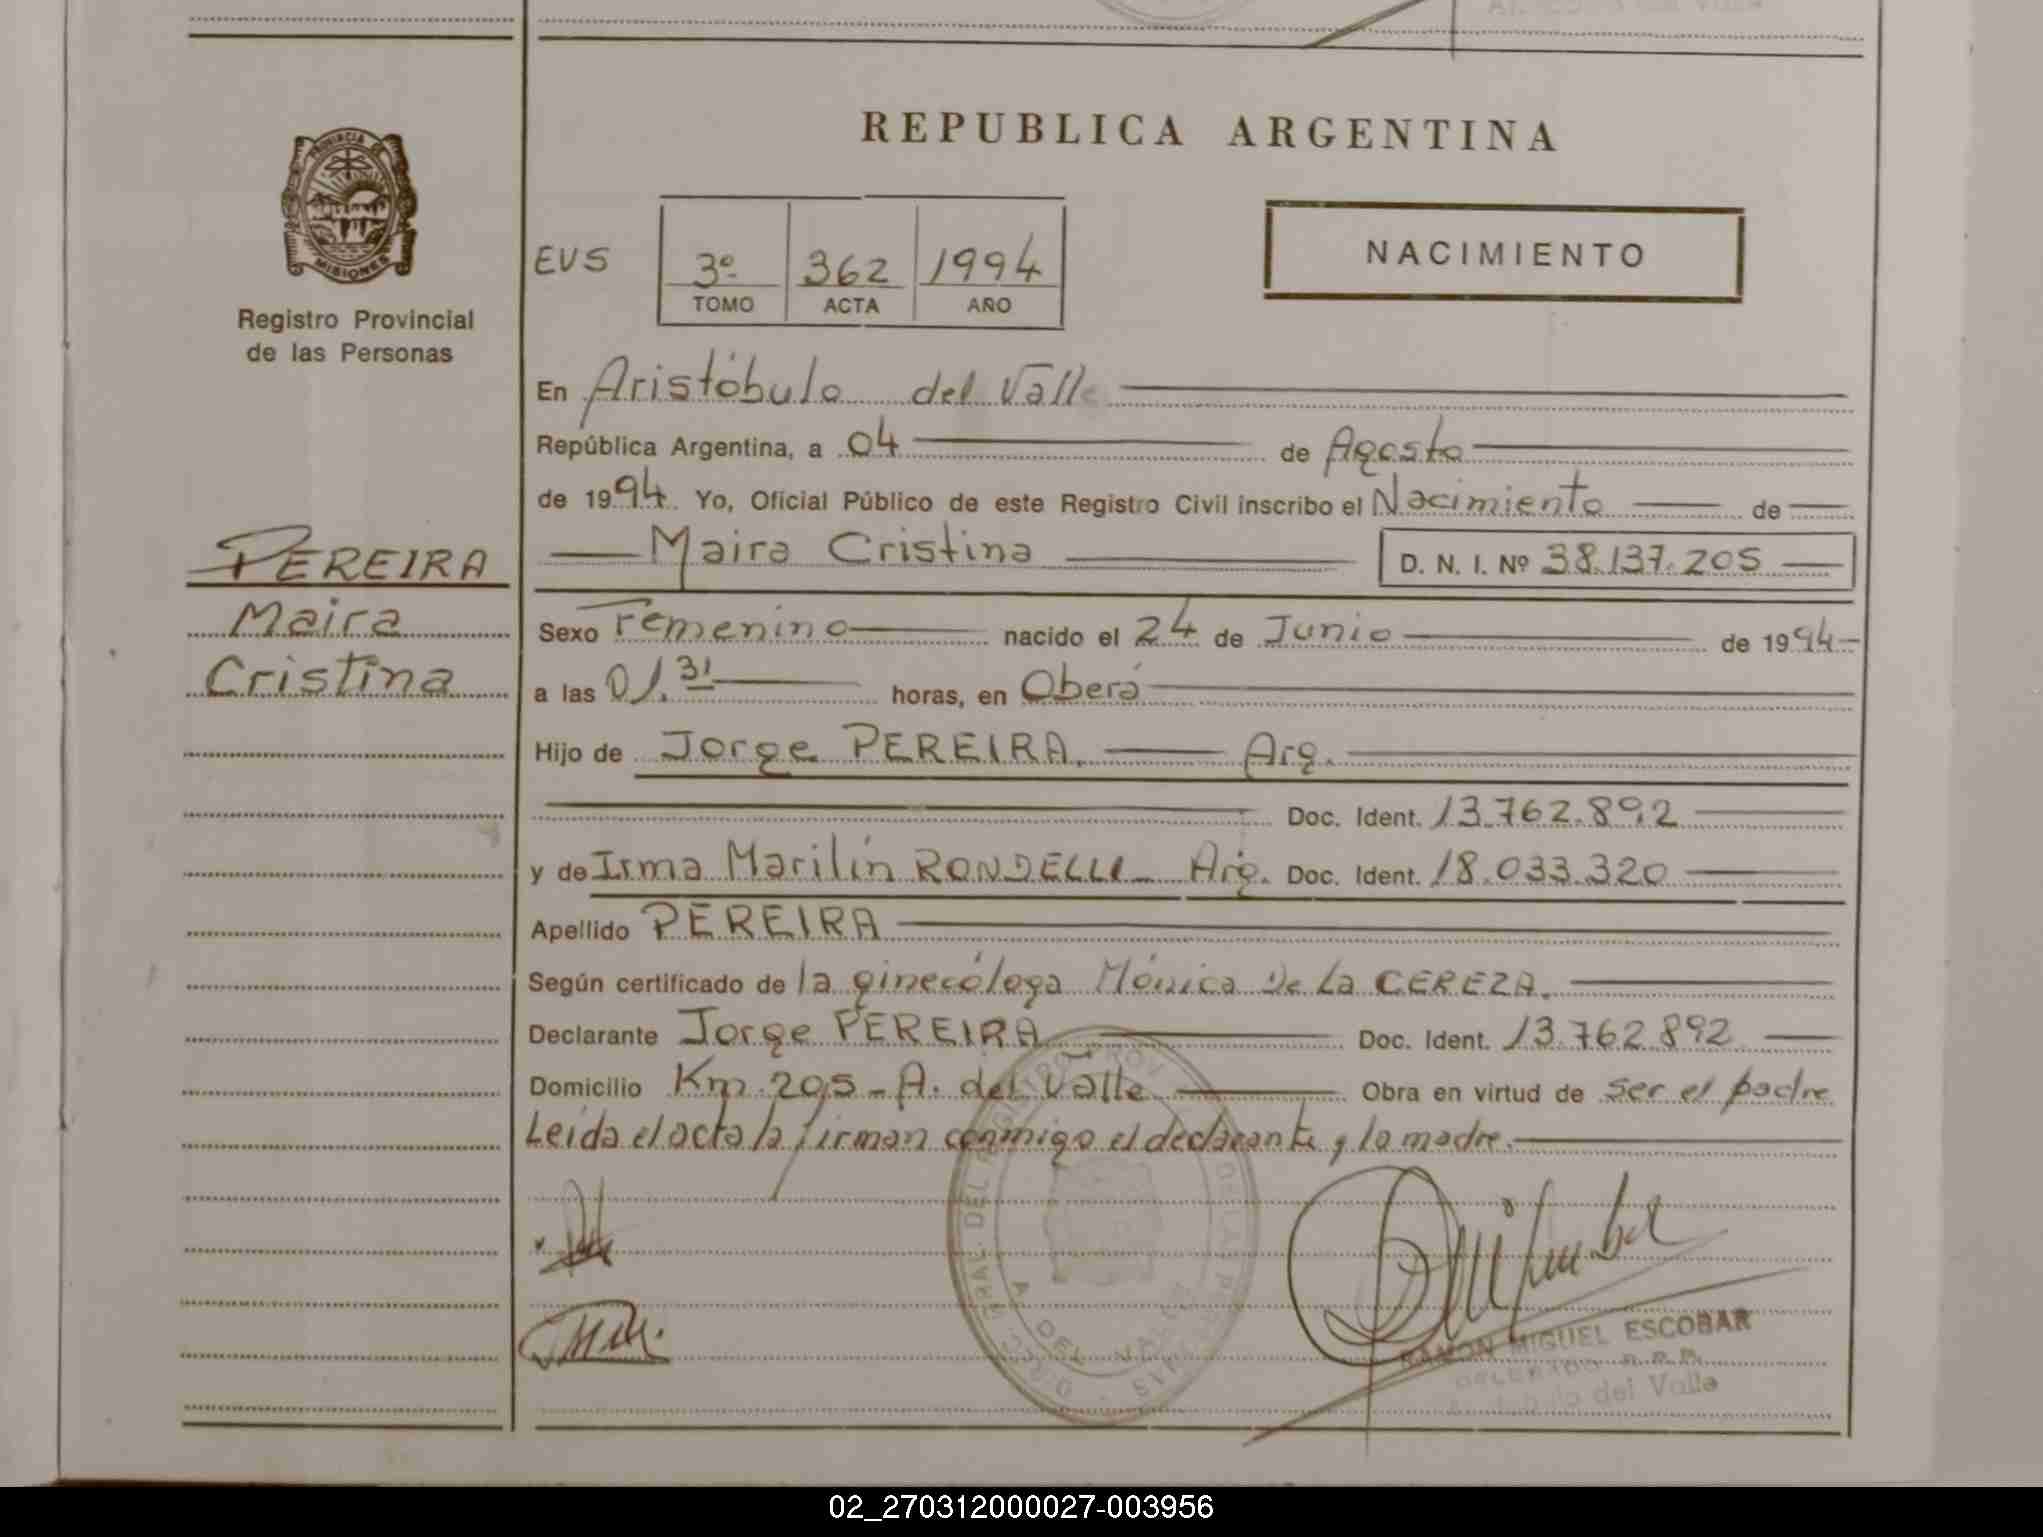 REPUBLICA ARGENTINA
PROVINCIA DE
MISIONES
Registro Provincial
de las Personas
EVS
3º 362 1994
TOMO ACTA AÑO
NACIMIENTO
En Aristóbulo del Valle
República Argentina, a 04 de Agosto
de 1994. Yo, Oficial Público de este Registro Civil inscribo el Nacimiento de
Maira Cristina D. N. I. Nº 38.137.205
PEREIRA
Maira
Cristina
Sexo Femenino nacido el 24 de Junio de 1994
a las 01.31 horas, en Oberá
Hijo de Jorge PEREIRA. Arg.
Doc. Ident. 13.762.892
y de Irma Marilín RONDELLI Arg. Doc. Ident. 18.033.320
Apellido PEREIRA
Según certificado de la ginecóloga Mónica De La CEREZA.
Declarante Jorge PEREIRA Doc. Ident. 13.762.892
Domicilio Km. 205 - A. del Valle Obra en virtud de ser el padre
Leída el acta la firman conmigo el declarante y la madre.
RAMON MIGUEL ESCOBAR
DELEGADO R.P.P.
del Valle
02_270312000027-003956